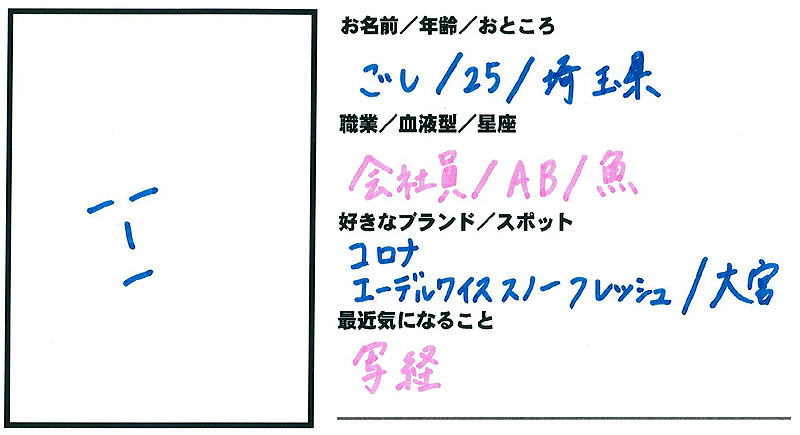 お名前／年齢／おところ
ごし/25/埼玉県
職業／血液型／星座
会社員/AB/魚
好きなブランド／スポット
コロナ
エーデルワイススノーフレッシュ/大宮
最近気になること
写経